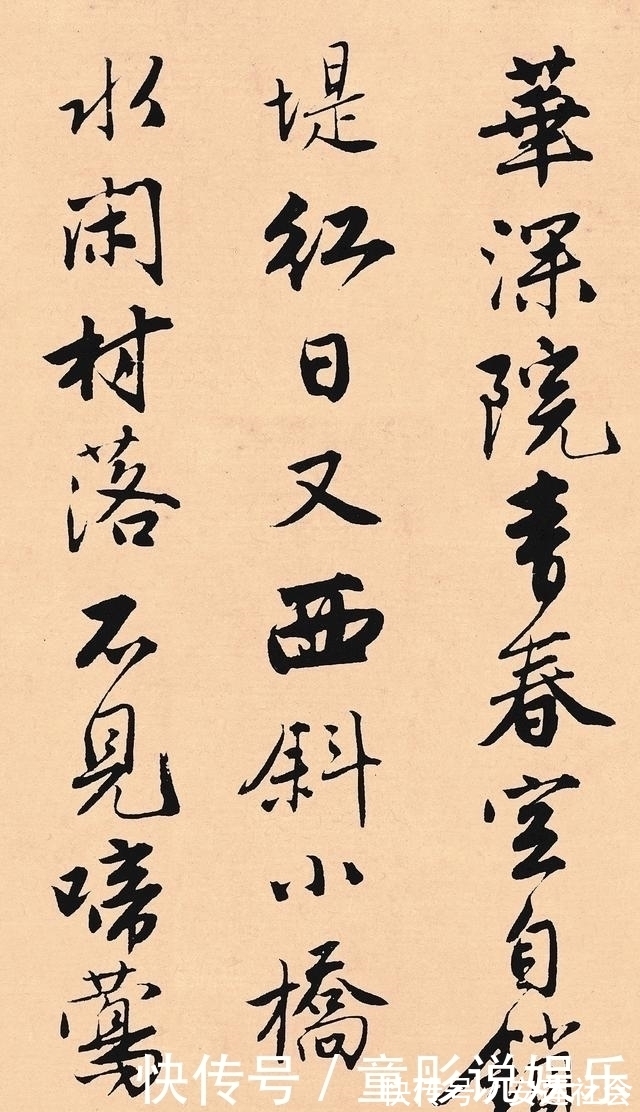 華深院青春空自
堤紅日又西斜小橋
水閑村落不見啼鶯
快传号 / 童彤说娱乐